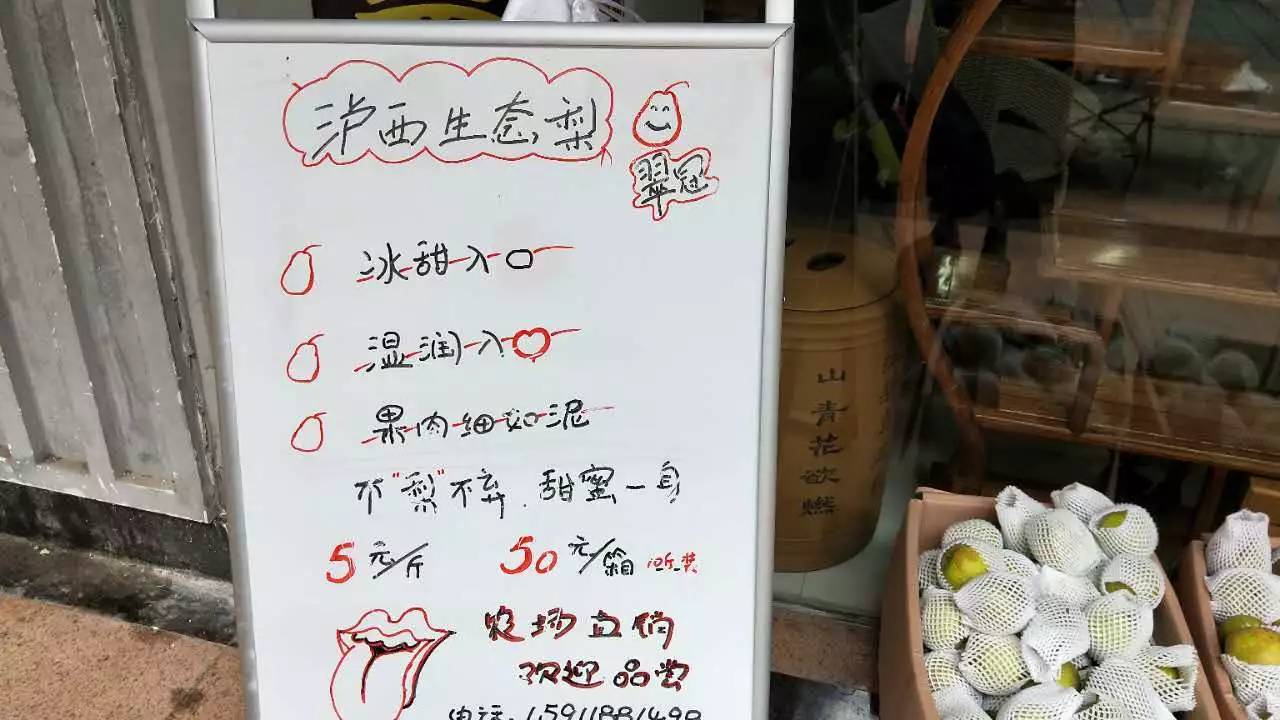 泸西生态梨
翠冠
冰甜入口
湿润入
果肉细如泥
不"梨"不弃.甜蜜一身
5元/斤 50元/箱 10斤装
农场直销
欢迎品尝
电话:15911881498
山青花欲燃